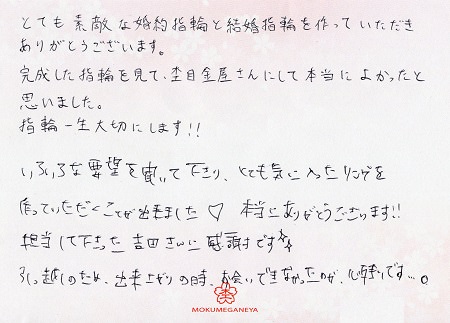 とても素敵な婚約指輪と結婚指輪を作っていただき
ありがとうございます。
完成した指輪を見て、杢目金屋さんにして本当によかったと
思いました。
指輪一生大切にします!!
いろいろな要望を聞いて下さり、とても気に入ったリングを
作っていただくことが出来ました♡ 本当にありがとうございます!!
担当して下さった吉田さんに感謝です
引っ越しのため、出来上がりの時、お会いできなかったのが、心残りです…。
MOKUMEGANEYA